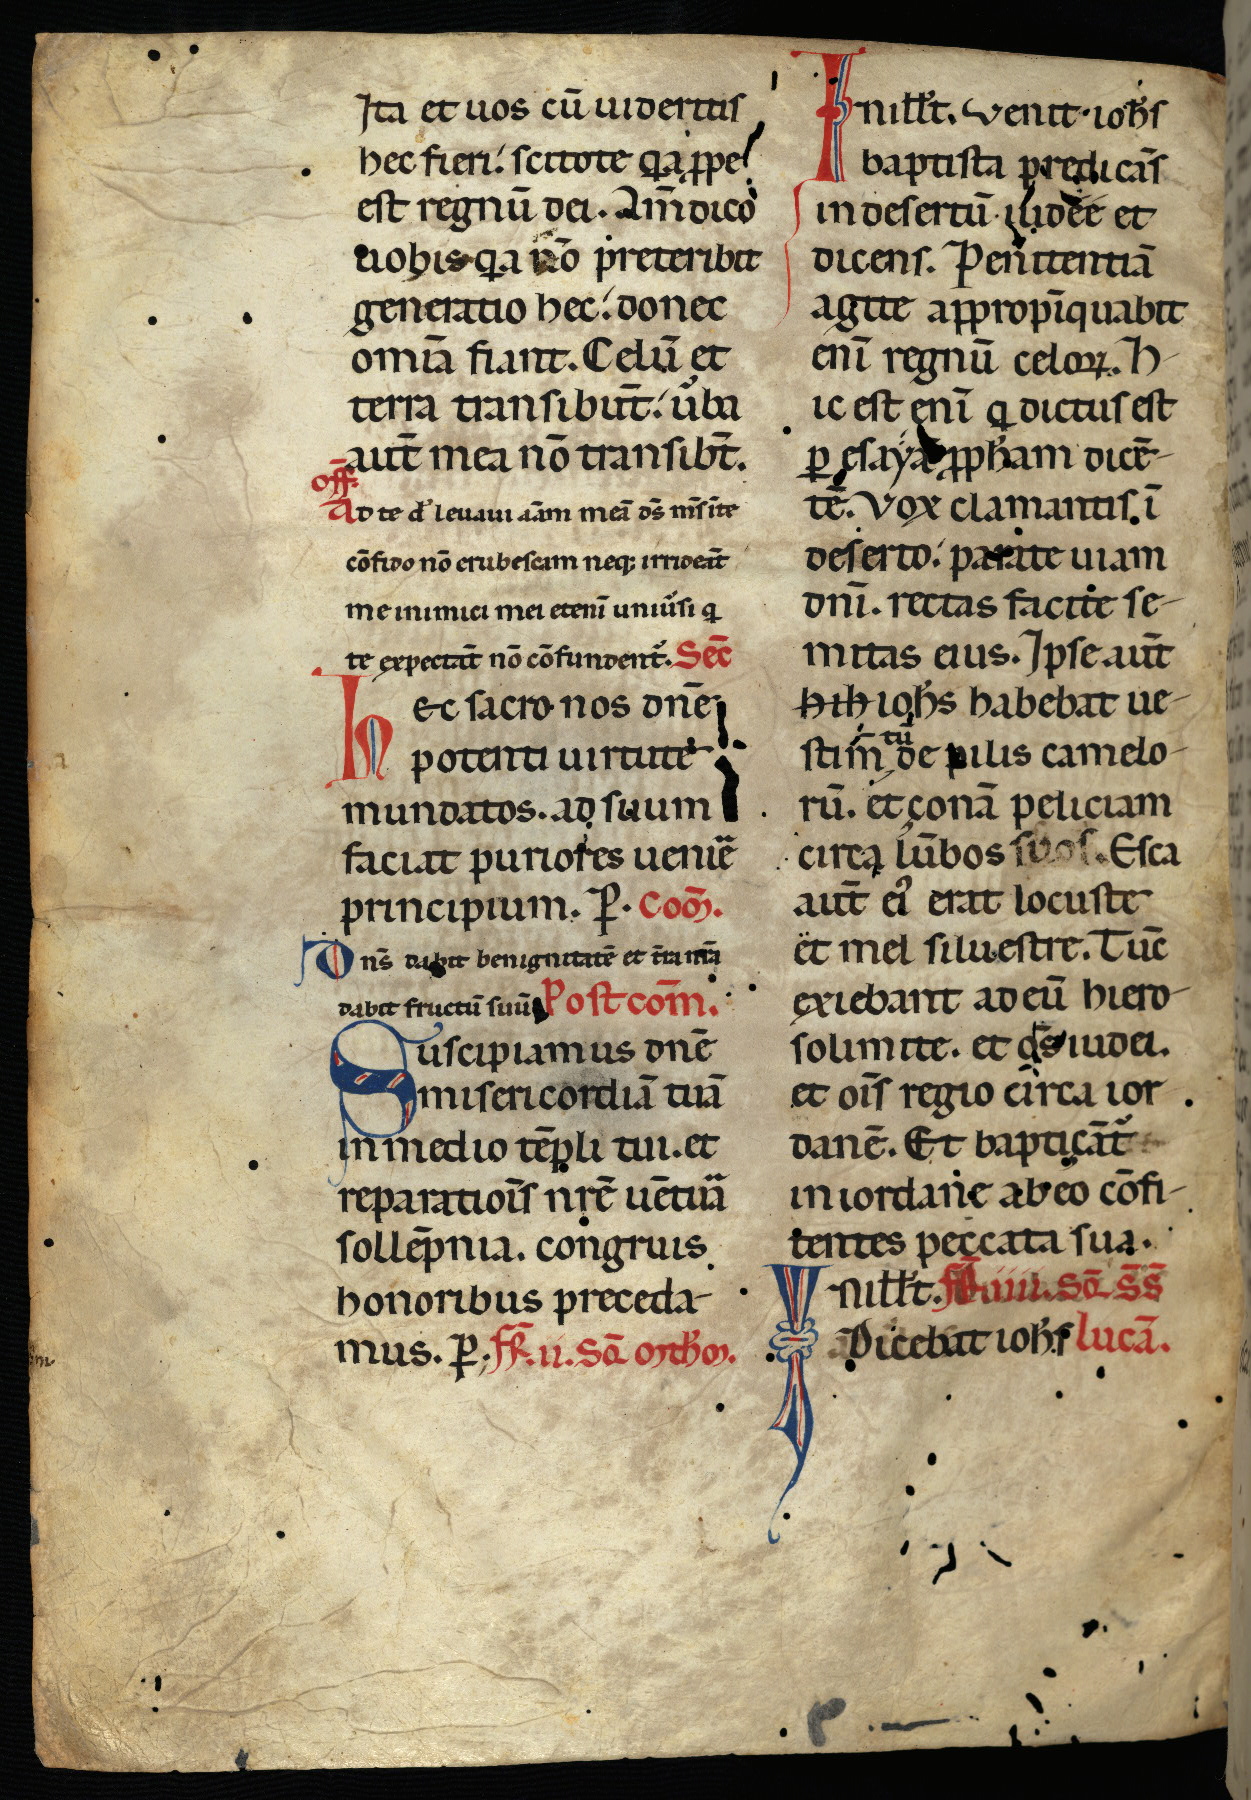 Ita et uos cū uideritis
hec fieri: scitote qa ppe
est regnū dei. Am̄ dico
uobis qa nō preteribit
generatio hec: donec
omīa fiant. Celū et
terra transibūt: ūba
aūt mea nō transibt̄.
off̄.
Ad te d̄ leuaui aīam meā ds̄ ms̄ ī te
cōfido nō erubescam neq; irrideāt
me inimici mei etenī uniūsi q
te expectāt nō cōfundent̄. Sec̄
Hec sacro nos dnē
potenti uirtute
mundatos. ad suum
faciat puriores uenīe
principium. P. Com̄.
Dns̄ dabit benignitatē et t̄ra nr̄a
dabit fructū suū Post com̄.
Suscipiamus dnē
misericordiā tuā
in medio tēpli tui. et
reparatioīs nrē uētuā
sollēpnia. congruis
honoribus preceda-
mus. P. fr̄. ii. Sc̄ mthm.
In illt̄. Venit iohs
baptista predicās
in desertū iudēe et
dicens. Penitentiā
agite appropīquabit
enī regnū celoꝝ. H-
ic est enī q dictus est
p esayā pph̄am dicē-
tē. Vox clamantis ī
deserto: parate uiam
dnī. rectas facite se-
mitas eius. Ipse aūt
hih iohs habebat ue-
stim̄tū de pilis camelo-
rū. et çonā peliciam
circa lūbos suos. Esca
aūt eī erat locuste
et mel siluestre. Tūc
exiebant ad eū hiero-
solimite. et os̄ iudei.
et oīs regio circa ior
danē. Et baptiçāt̄
in iordane ab eo cōfi-
tentes peccata sua.
In illt̄. fr̄ iiii. Sc̄ ss̄
Dicebat iohs lucā.